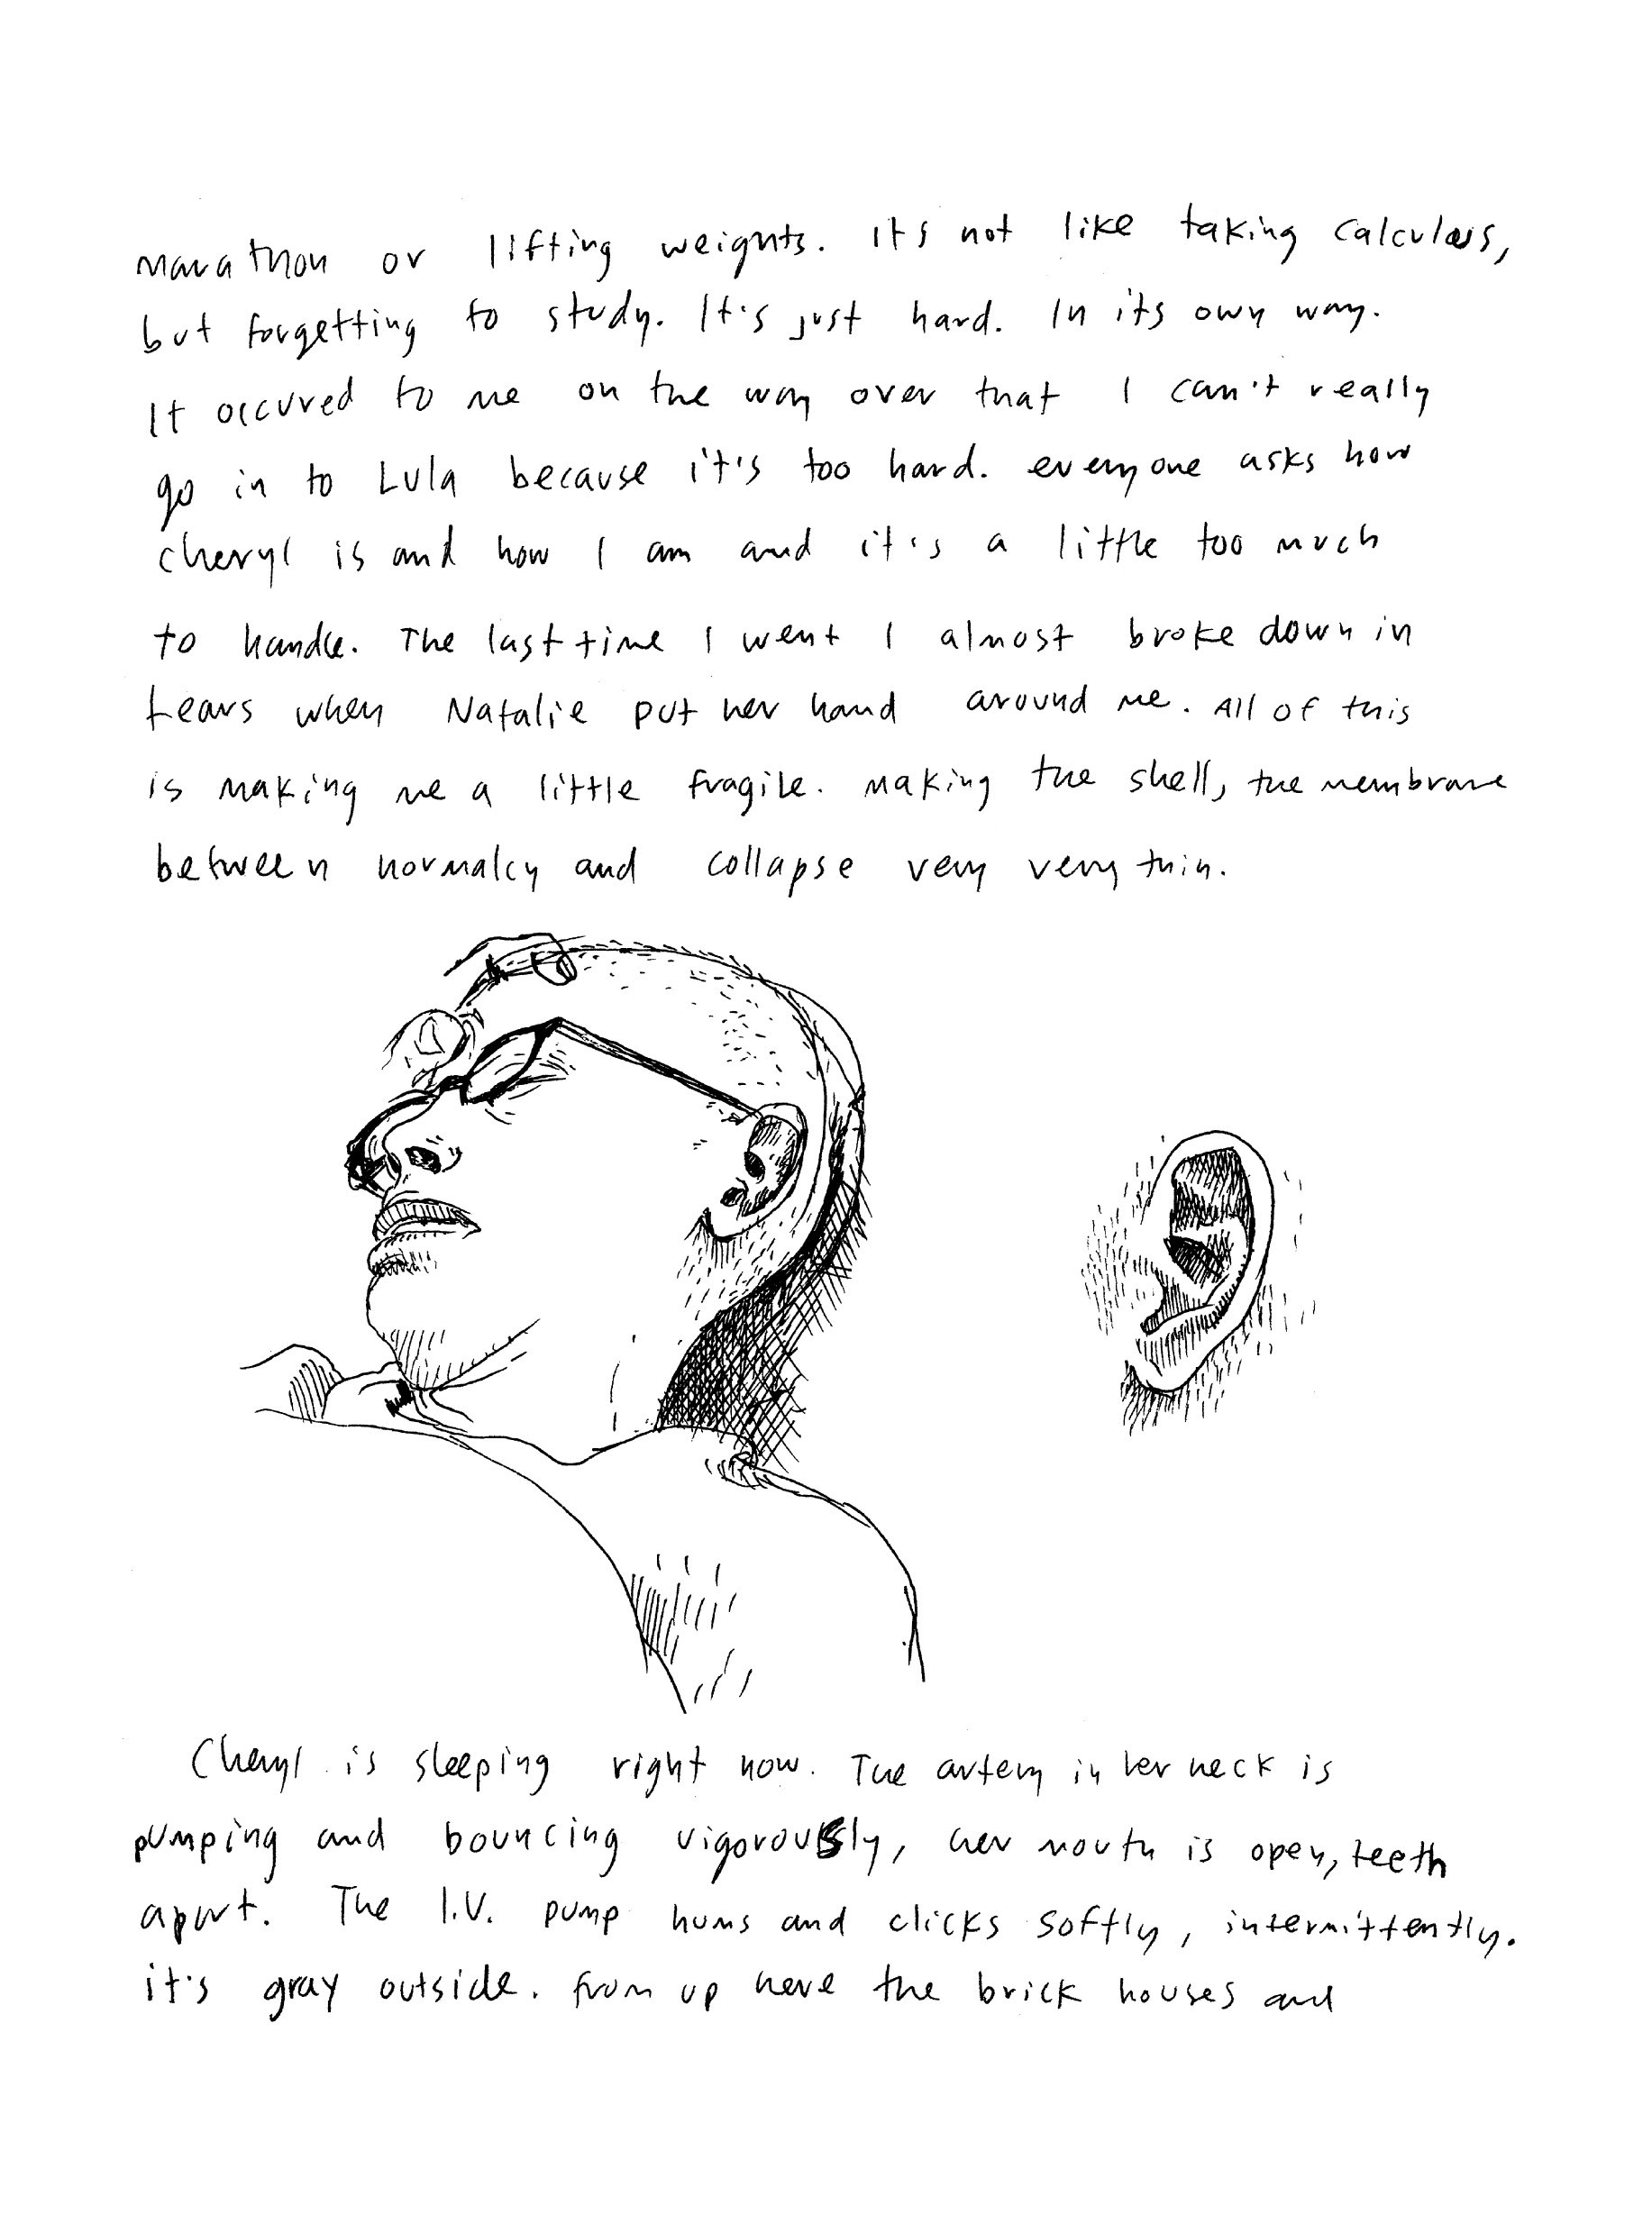 marathon or lifting weights. It's not like taking calculus,
but forgetting to study. It's just hard. In its own way.
It occured to me on the way over that I can't really
go in to Lula because it's too hard. everyone asks how
Cheryl is and how I am and it's a little too much
to handle. The last time I went I almost broke down in
tears when Natalie put her hand around me. All of this
is making me a little fragile. making the shell, the membrane
between normalcy and collapse very very thin.
Cheryl is sleeping right now. The artery in her neck is
pumping and bouncing vigorously, her mouth is open, teeth
apart. The I.V. pump hums and clicks softly, intermittently.
it's gray outside. from up here the brick houses and